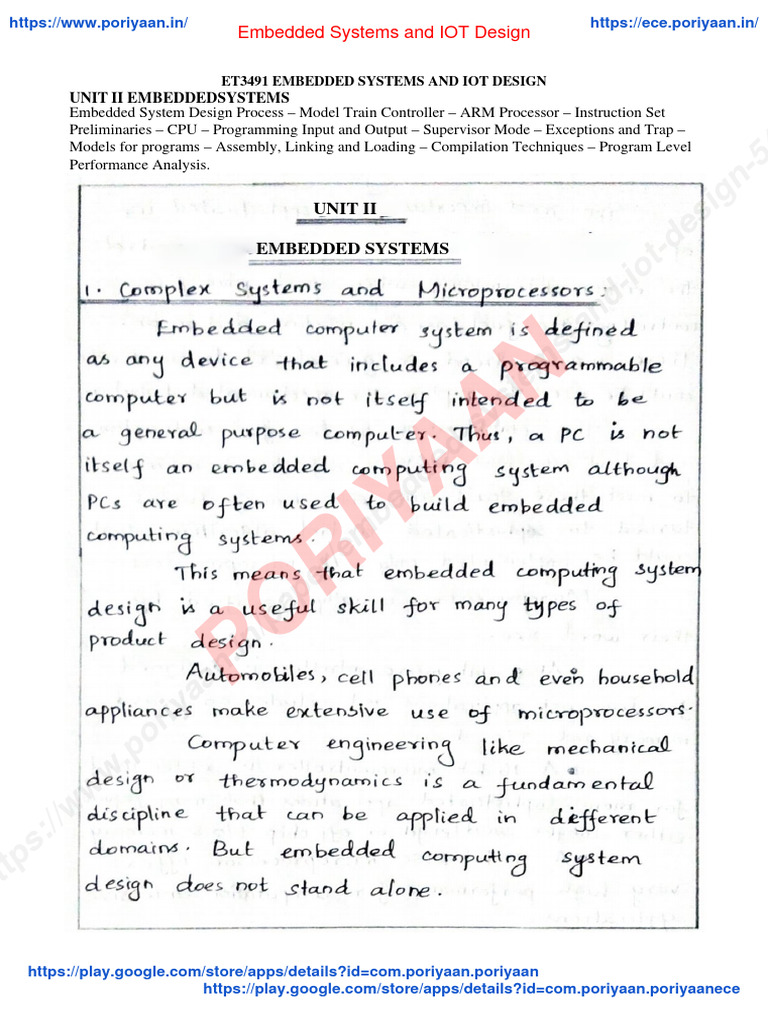 https://www.poriyaan.in/
Embedded Systems and IOT Design
https://ece.poriyaan.in/
ET3491 EMBEDDED SYSTEMS AND IOT DESIGN
UNIT II EMBEDDEDSYSTEMS
Embedded System Design Process – Model Train Controller – ARM Processor – Instruction Set
Preliminaries – CPU – Programming Input and Output – Supervisor Mode – Exceptions and Trap –
Models for programs – Assembly, Linking and Loading – Compilation Techniques – Program Level
Performance Analysis.
UNIT II
EMBEDDED SYSTEMS
1. Complex Systems and Microprocessors:
Embedded computer system is defined
as any device that includes a programmable
computer but is not itself intended to be
a general purpose computer. Thus, a PC is not
itself an embedded computing system although
PCs are often used to build embedded
computing systems.
This means that embedded computing system
design is a useful skill for many types of
product design.
Automobiles, cell phones and even household
appliances make extensive use of microprocessors.
Computer engineering like mechanical
design or thermodynamics is a fundamental
discipline that can be applied in different
domains. But embedded computing system
design does not stand alone.
PORIYAAN
https://play.google.com/store/apps/details?id=com.poriyaan.poriyaan
https://play.google.com/store/apps/details?id=com.poriyaan.poriyaanece